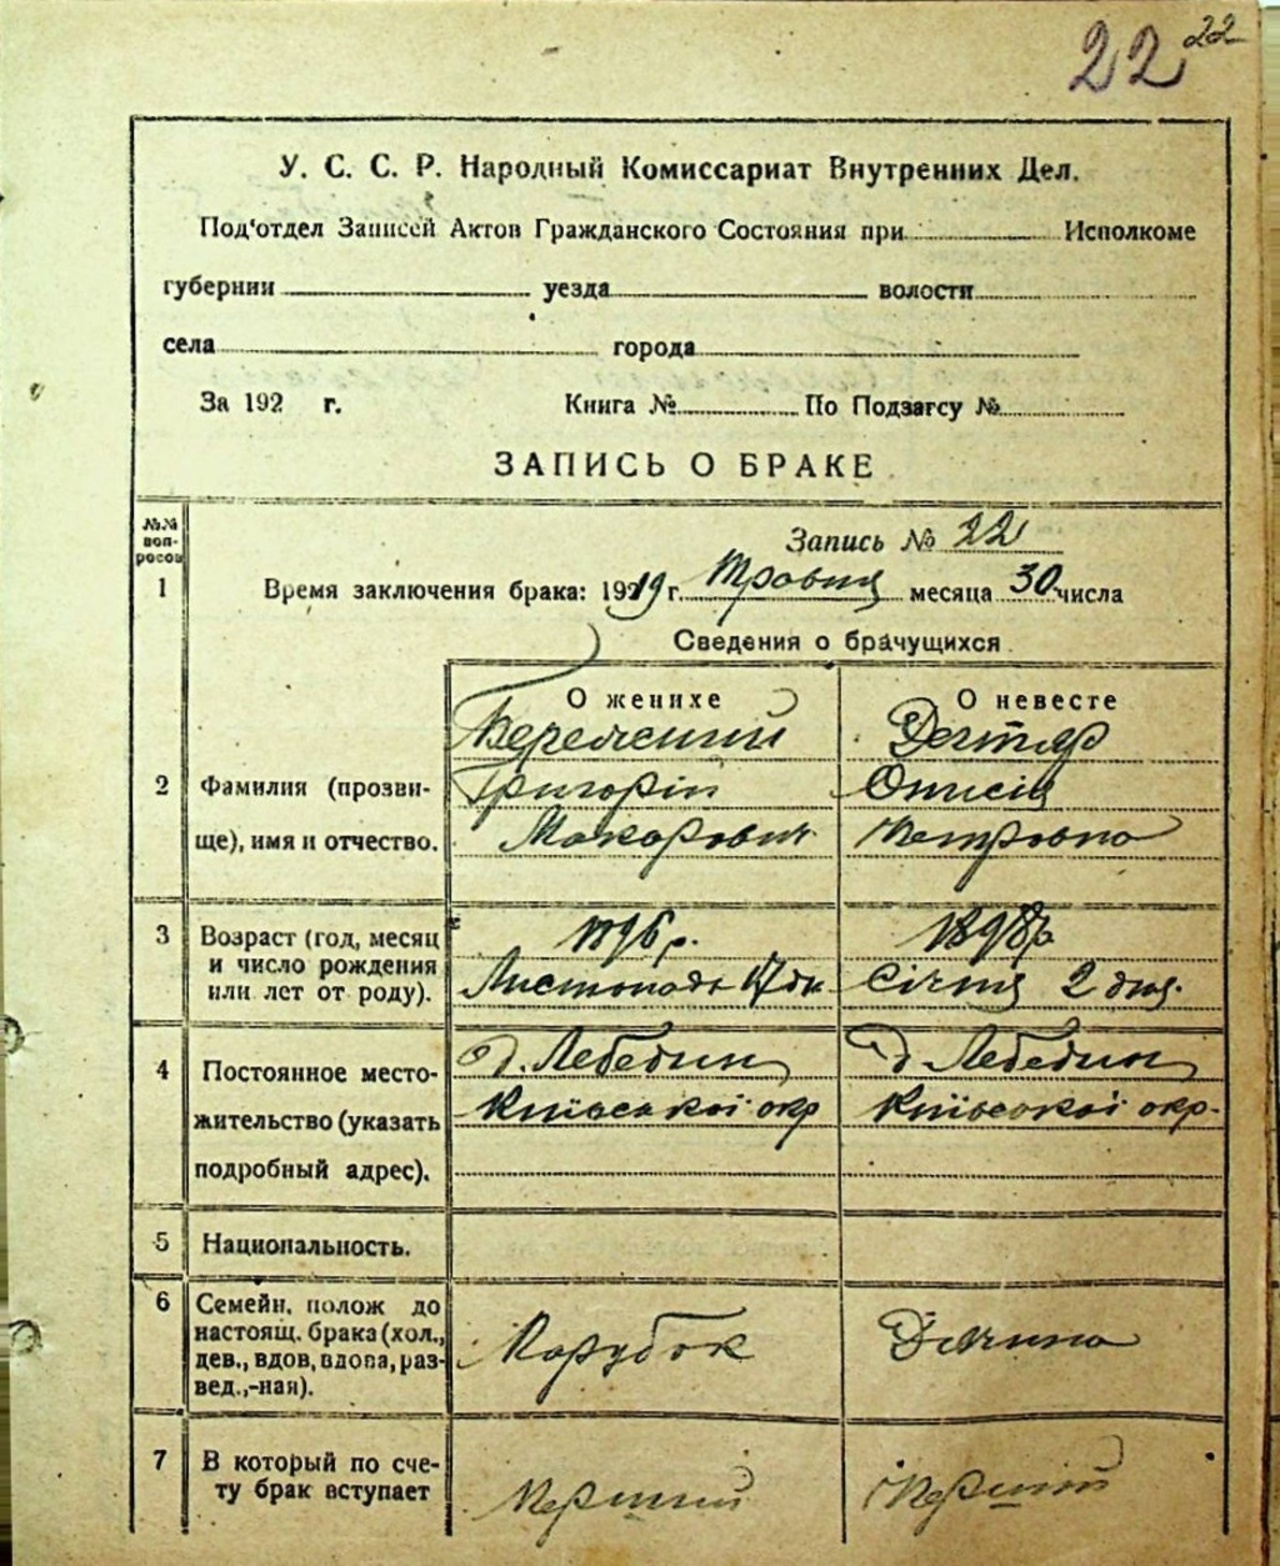 22 22
У. С. С. Р. Народный Комиссариат Внутренних Дел.
Под'отдел Записей Актов Гражданского Состояния при Исполкоме
губернии уезда волости
села города
За 192 г. Книга № По Подзагсу №
ЗАПИСЬ О БРАКЕ
№№ воп-
росов
Запись № 22
1 Время заключения брака: 19219 г. Травня месяца 30 числа
Сведения о брачущихся
О женихе О невесте
Дегтяр
2 Фамилия (прозви- Григорій Онисія
ще), имя и отчество. Макарович Петровна
3 Возраст (год, месяц 1896 р. 1898 р.
и число рождения Листопада 17 дн. Січня 2 дня.
или лет от роду).
4 Постоянное место- с. Лебедин с. Лебедин
жительство (указать Київської окр Київської окр.
подробный адрес).
5 Национальность.
6 Семейн. полож до
настоящ. брака (хол., Парубок Дівчина
дев., вдов, вдова, раз-
вед.,-ная).
7 В который по сче-
ту брак вступает Перший Перший